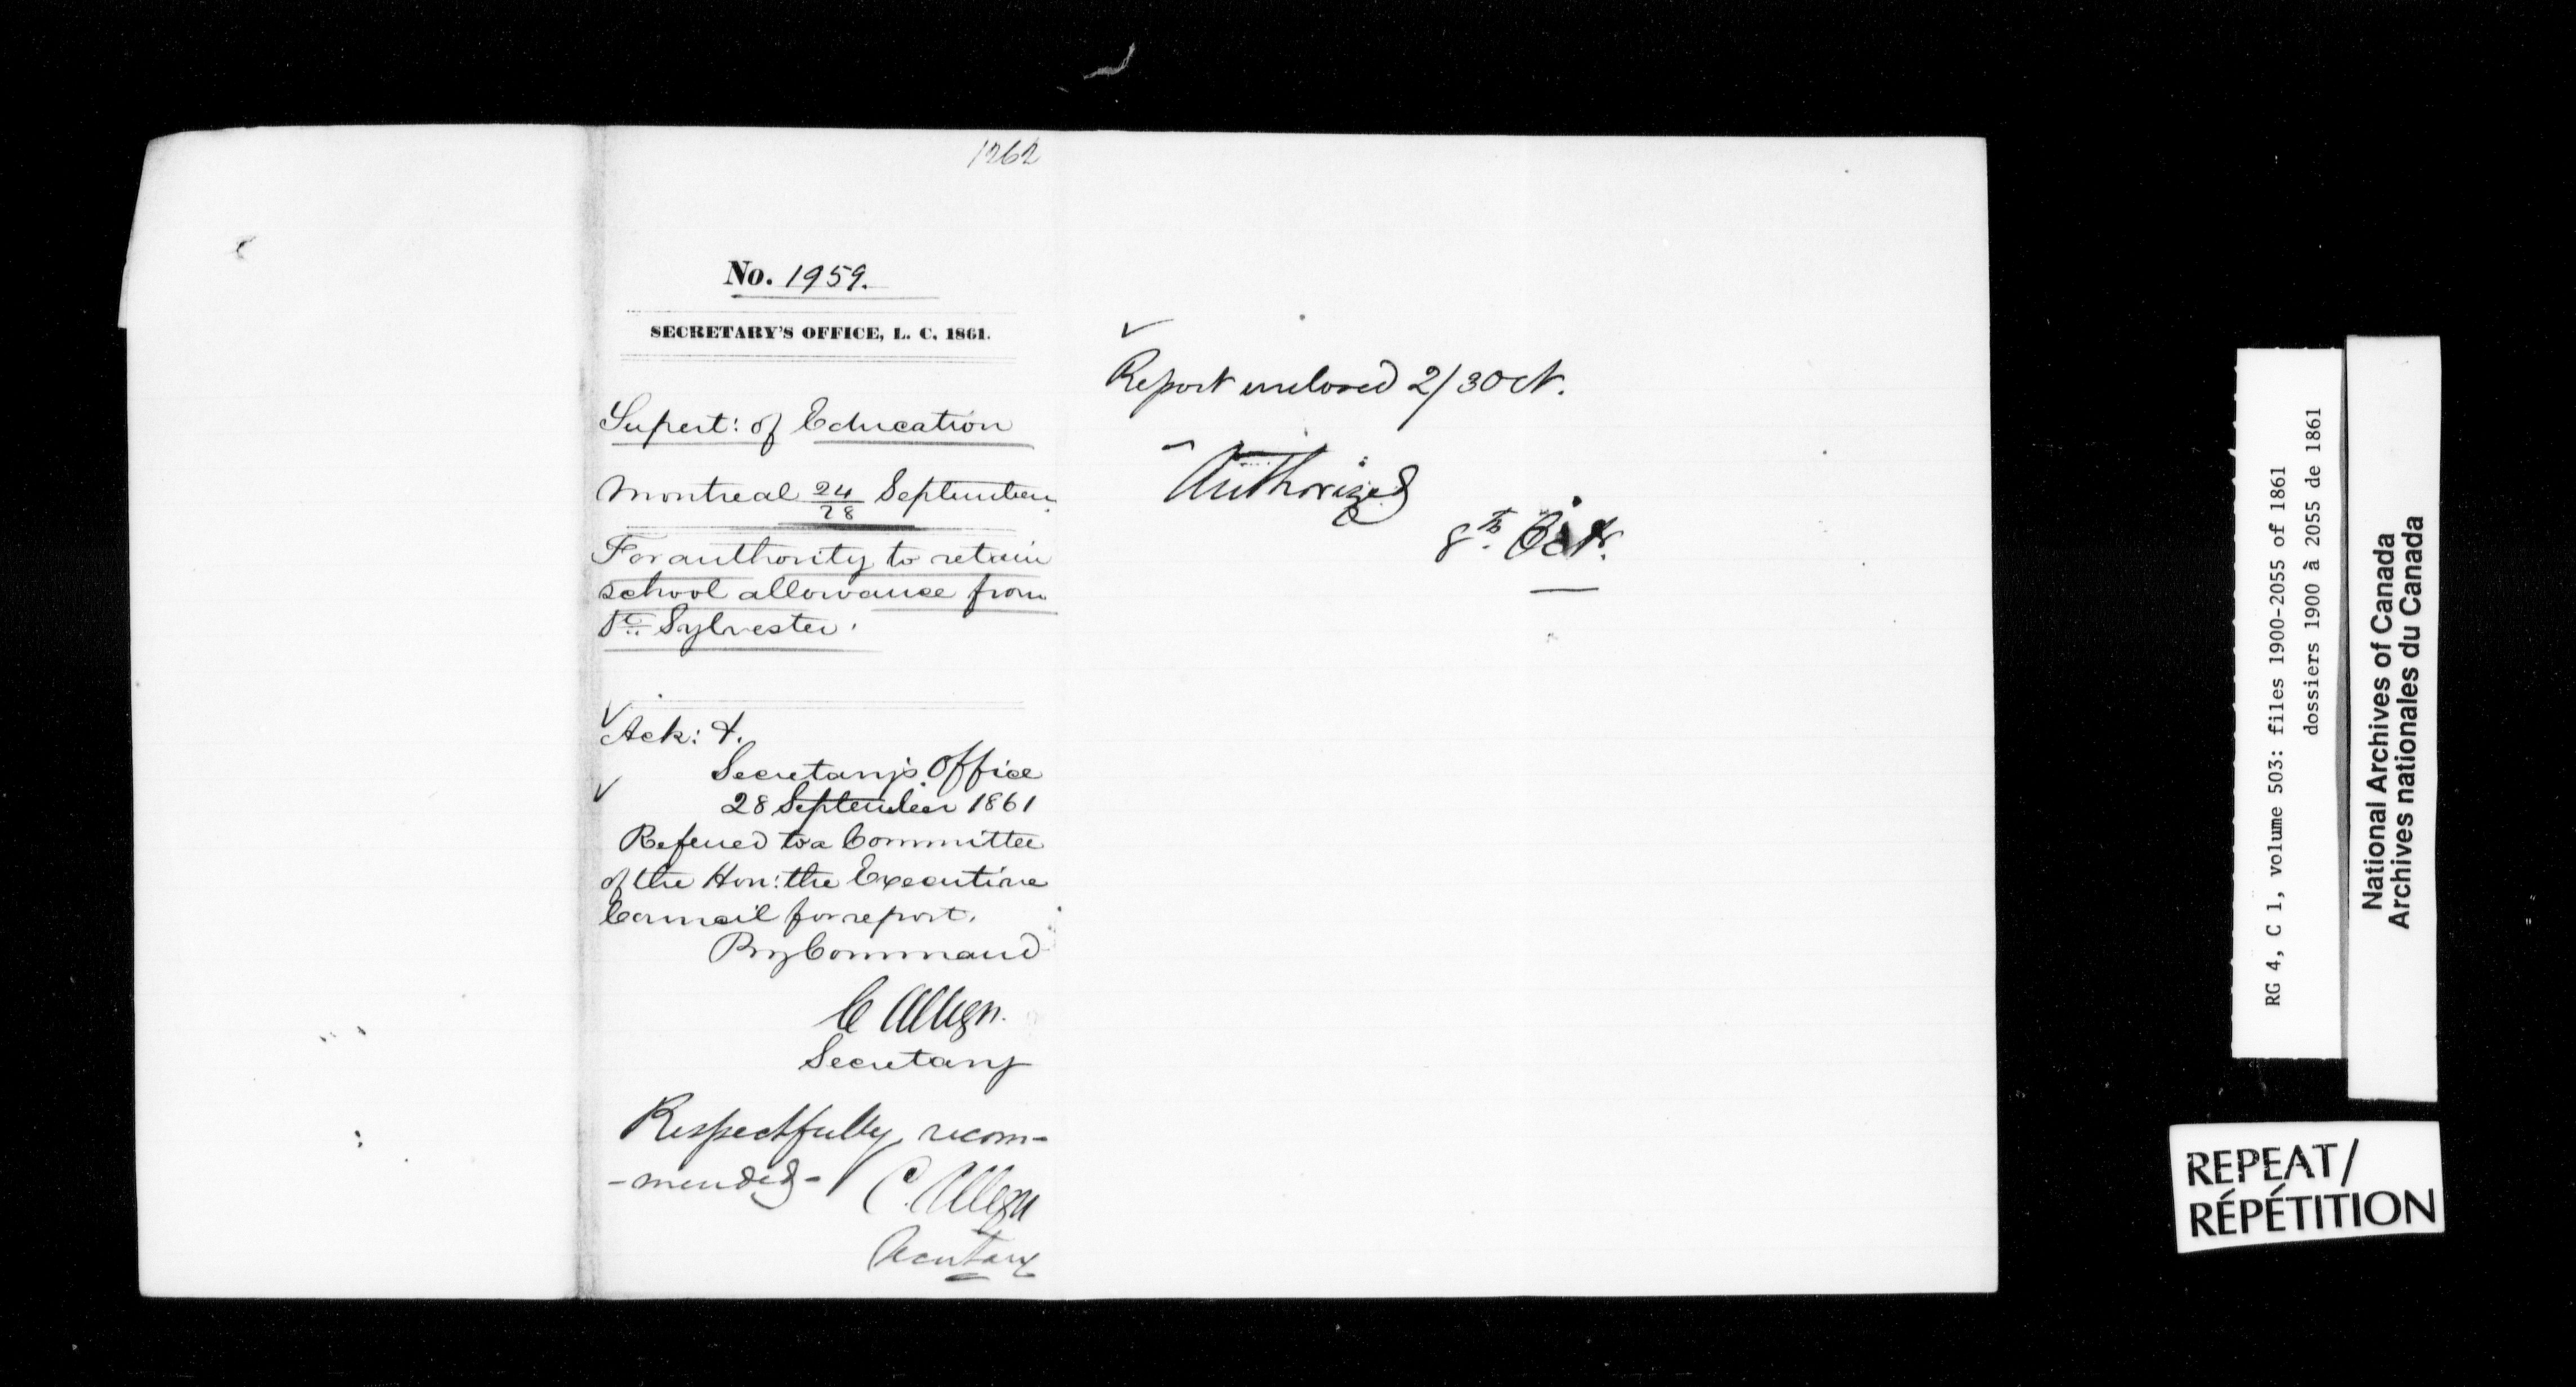 1262
No. 1959.
SECRETARY'S OFFICE, L. C. 1861.
Supert: of Education
Montreal 24/28 September
For authority to retain
school allowance from
St. Sylvester.
Ack: d.
Secretary's Office
28 September 1861
Referred to a Committee
of the Hon: the Executive
Council for report.
By Command
C Alleyn.
Secretary
Respectfully recom-
-mended-
C. Alleyn
Secretary
Report enclosed 2/3 Oct.
Authorized
8th. Oct.
RG 4, C 1, volume 503: files 1900-2055 of 1861
dossiers 1900 à 2055 de 1861
National Archives of Canada
Archives nationales du Canada
REPEAT/
RÉPÉTITION